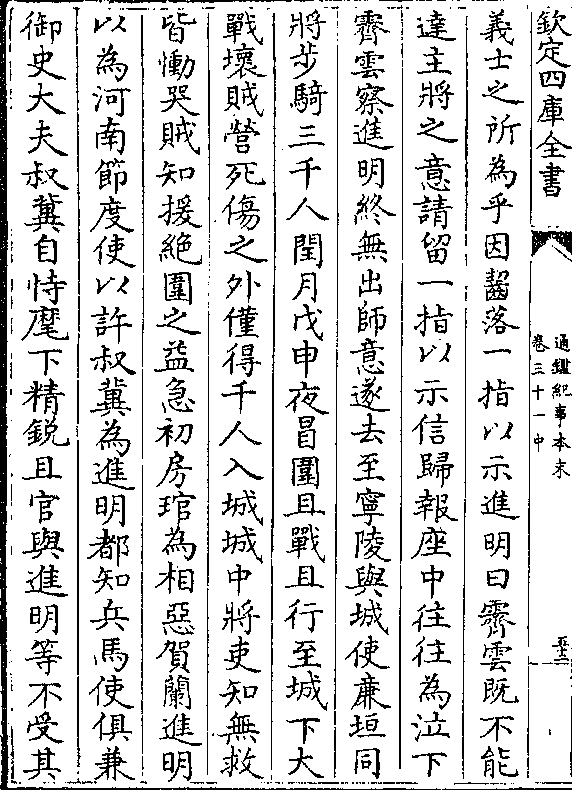 欽定四庫全書
通鑑紀事本末
卷三十一中
義士之所為乎因齧落一指以示進明曰霽雲既不能
達主將之意請留一指以示信歸報座中往往為泣下
霽雲察進明終無出師意遂去至寧陵與城使亷垣同
將步騎三千人閏月戊申夜冒圍且戰且行至城下大
戰壞賊營死傷之外僅得千人入城城中將吏知無救
皆慟哭賊知援絶圍之益急初房琯為相惡賀蘭進明
以為河南節度使以許叔冀為進明都知兵馬使俱兼
御史大夫叔冀自恃麾下精鋭且官與進明等不受其